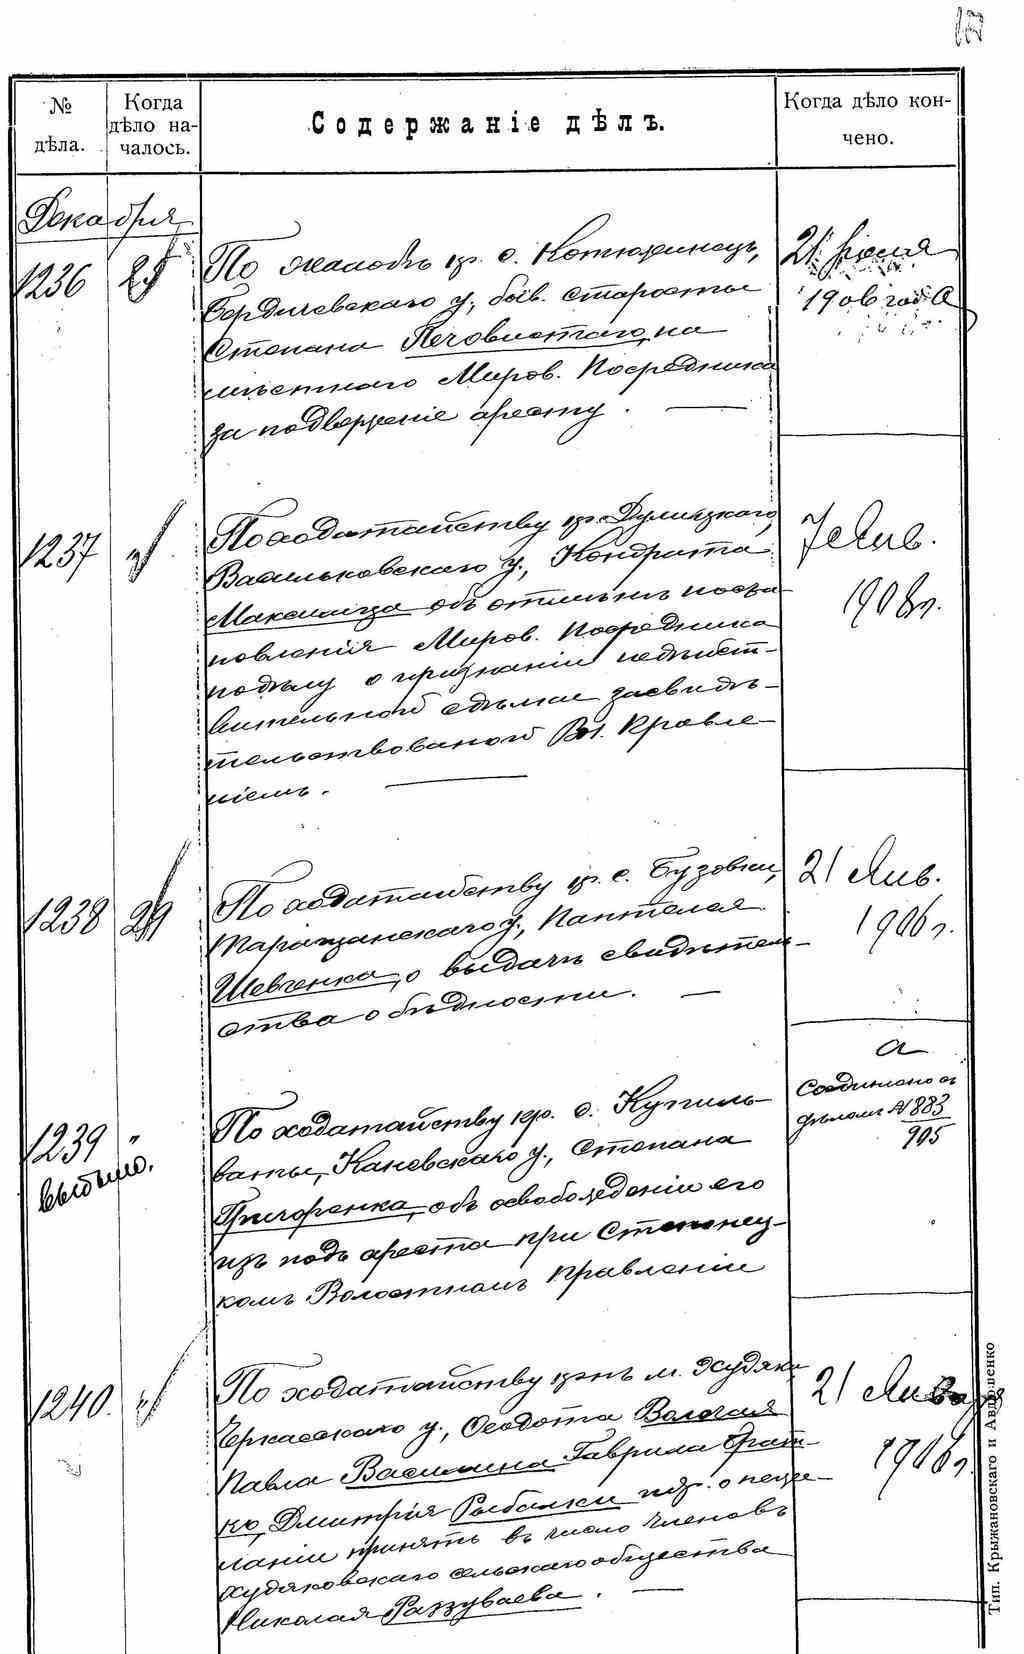 № дѣла.
Когда дѣло на-
чалось.
Содержаніе дѣлъ.
Когда дѣло кон-
чено.
Декабря
1236
По жалобѣ кр. с. Котюжинецъ,
Бердичевскаго у., быв. старосты
Степана Печовистаго, на
мѣстнаго Миров. Посредника
за подверженіе аресту. —
21 Іюля
1906 года
1237 "
По ходатайству кр.
Васильковскаго у., Кондрата
Максимца объ отмѣнѣ поста-
новленія Миров. Посредника
по дѣлу о признаніи недѣйст-
вительной сдѣлки засвидѣ-
тельствованой Вол. Правле-
ніемъ. —
7 Янв.
1908 г.
1238 29
По ходатайству кр. с. Бузовки,
Таращанскаго у., Пантелея
Шевченка, о выдачѣ свидѣтель-
ства о бѣдности. —
21 Янв.
1906 г.
1239 "
выбыло.
По ходатайству кр. с. Купиль-
ваты, Каневскаго у., Степана
Григоренка, объ освобожденіи его
изъ подъ ареста при Степанец-
комъ Волостномъ Правленіи
а
Соединено съ
дѣломъ № 883
905
1240. "
По ходатайству кр-нъ м. Худяки,
Черкасскаго у., Ѳеодота
Павла Василина Гаврила Брат-
ко, Дмитрія Рыбалки и др. о неже-
ланіи принять въ число членовъ
Худяковскаго сельскаго общества
Николая Раззуваева. —
21 Января
1906 г.
Тип. Крыжановскаго и Авдюшенко